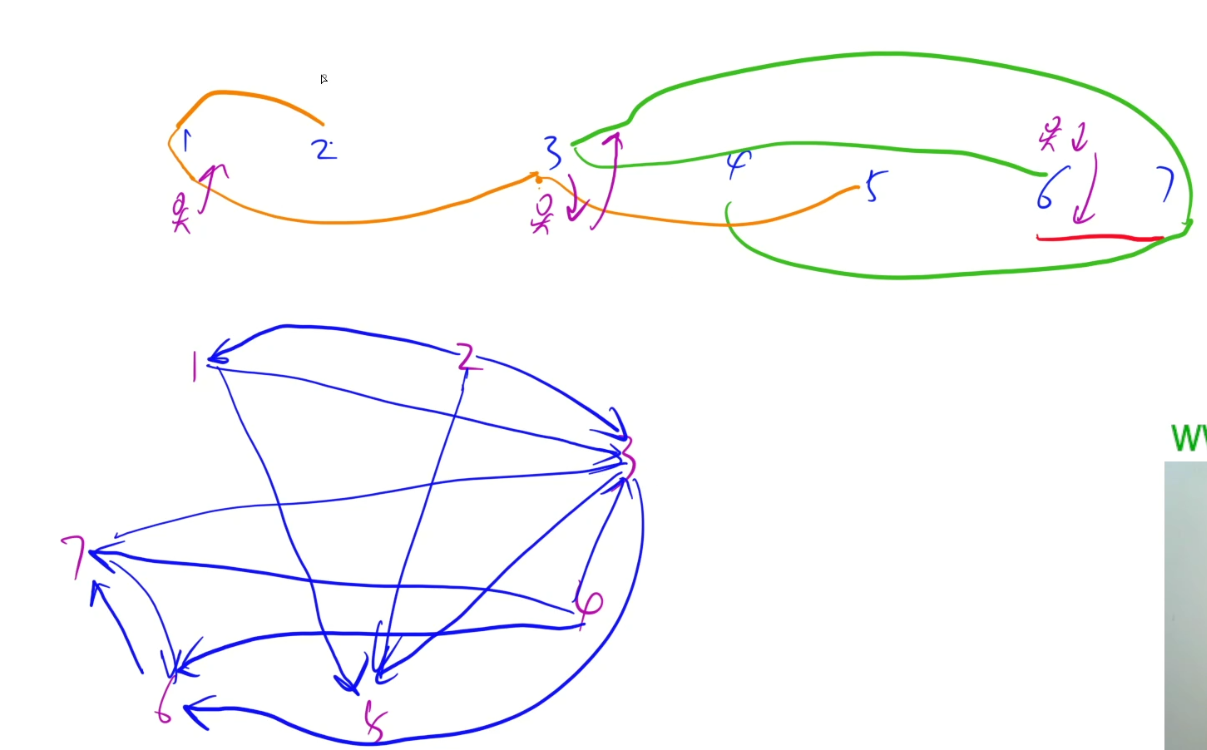 1 2 3 4 5 6 7
1 2
3
7
4
6 5